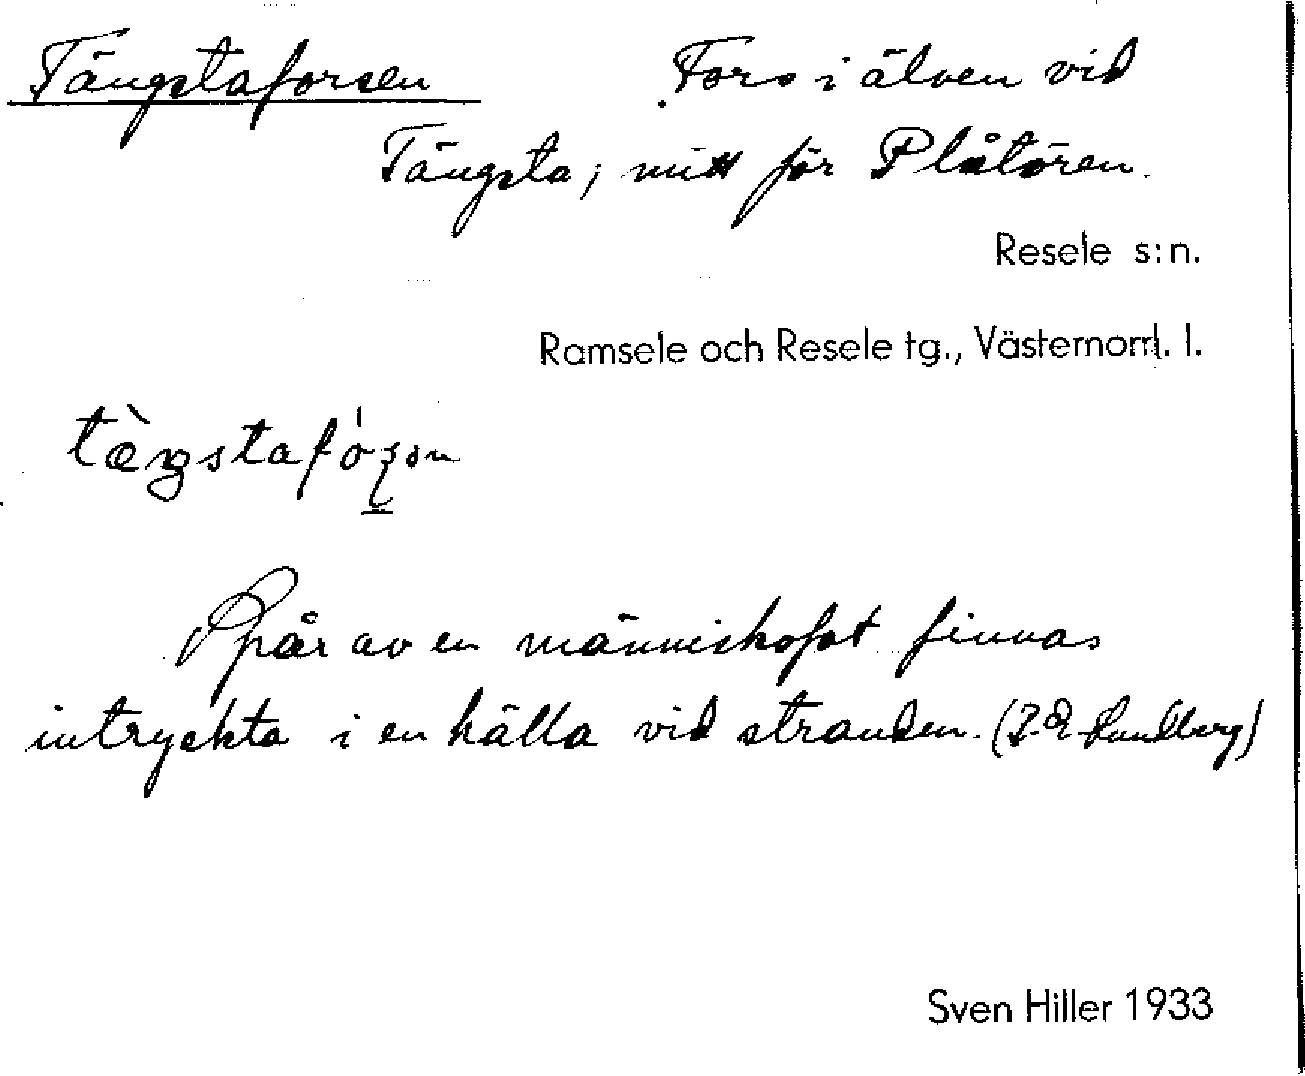 Tängstaforsen Fors i älven vid
Tängsta; mitt för Plåtören.
Resele s:n.
Ramsele och Resele tg., Västernorrl. l.
Spår av en människofot finnas
intryckta i en hälla vid stranden. (J. E. Sundberg)
Sven Hiller 1933